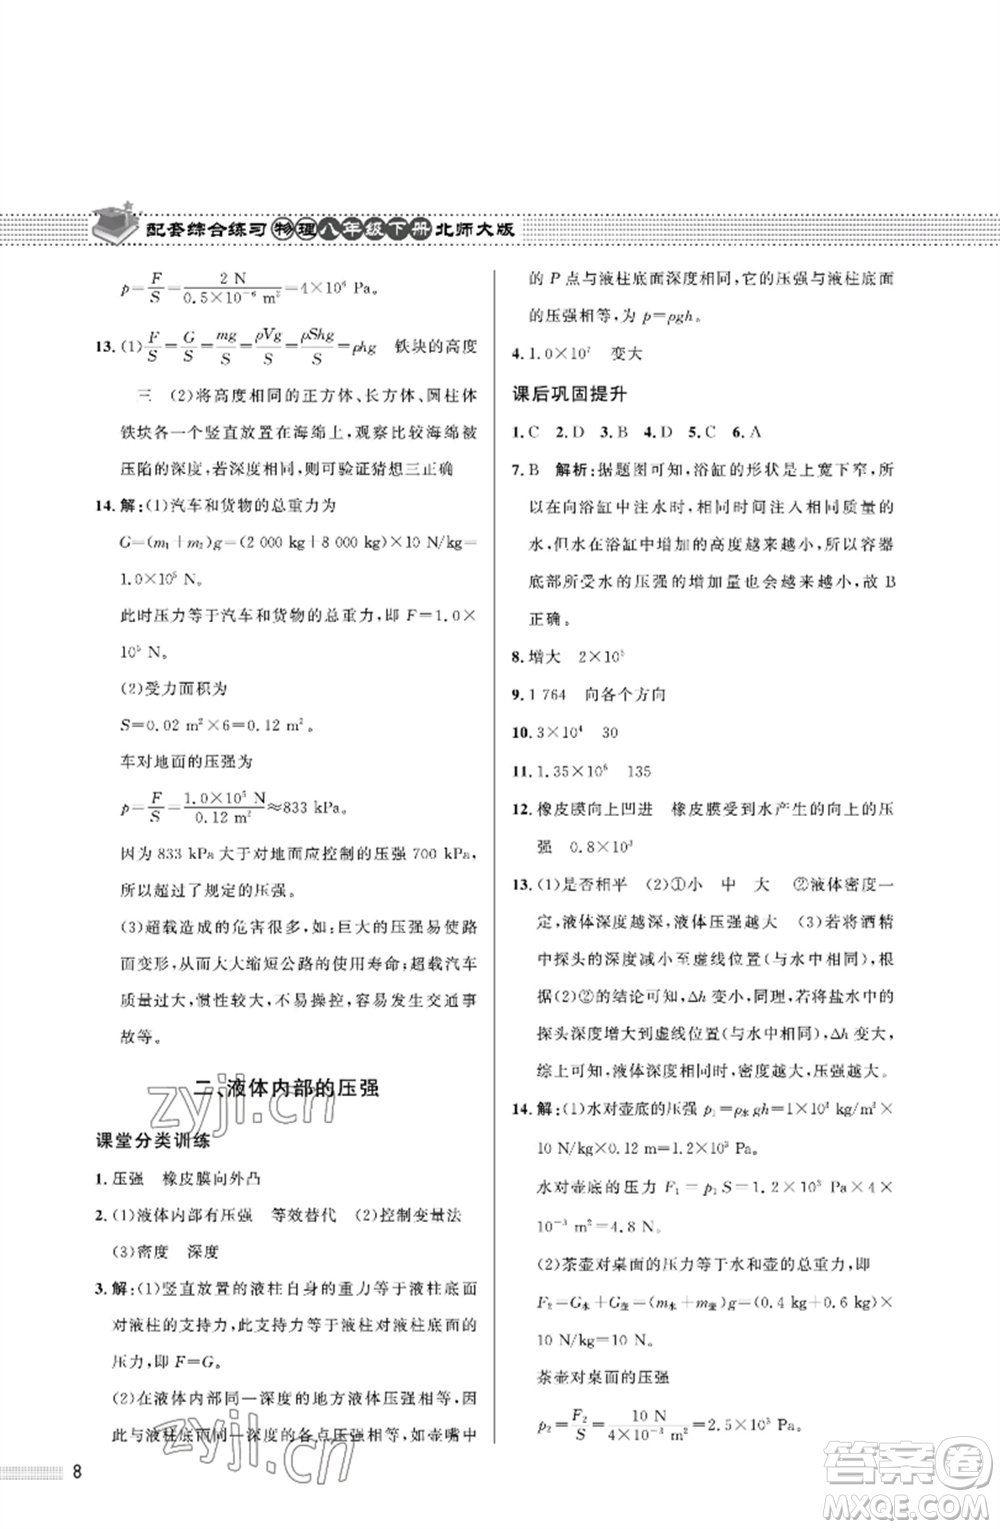 配套综合练习 物理八年级下册 北师大版
p=F/S=2 N/(0.5×10⁻⁶ m²)=4×10⁶ Pa。
13.(1)F/S=G/S=mg/S=ρVg/S=ρShg/S=ρhg 铁块的高度
三 (2)将高度相同的正方体、长方体、圆柱体
铁块各一个竖直放置在海绵上,观察比较海绵被
压陷的深度,若深度相同,则可验证猜想三正确
14.解:(1)汽车和货物的总重力为
G=(m₁+m₂)g=(2 000 kg+8 000 kg)×10 N/kg=
1.0×10⁵ N。
此时压力等于汽车和货物的总重力,即 F=1.0×
10⁵ N。
(2)受力面积为
S=0.02 m²×6=0.12 m²。
车对地面的压强
p=F/S=1.0×10⁵ N/0.12 m²≈833 kPa。
因为 833 kPa 大于对地面应控制的压强 700 kPa,
所以超过了规定的压强。
(3)超载造成的危害很多,如:巨大的压强易使路
面变形,从而大大缩短公路的使用寿命;超载汽车
质量过大,惯性较大,不易操控,容易发生交通事
故等。
二、液体内部的压强
课堂分类训练
1.压强 橡皮膜向外凸
2.(1)液体内部有压强 等效替代 (2)控制变量法
(3)密度 深度
3.解:(1)竖直放置的液柱自身的重力等于液柱底面
对液柱的支持力,此支持力等于液柱对底面的
压力,即 F=G。
(2)在液体内部同一深度的地方液体压强相等,
与液柱底面同一深度的各点压强相等,如壶嘴中
8
的 P 点与液柱底面深度相同,它的压强与液柱底面
的压强相等,为 p=ρgh。
4.1.0×10² 变大
课后巩固提升
1.C 2.D 3.B 4.D 5.C 6.A
7.B 解析:据题图可知,浴缸的形状是上宽下窄,所
以在向浴缸中注水时,相同时间注入相同质量的
水,但水在浴缸中增加的高度越来越小,所以容器
底部所受水的压强的增加量也会越来越小,故 B
正确。
8.增大 2×10⁵
9.1 764 向各个方向
10.3×10⁴ 30
11.1.35×10⁶ 135
12.橡皮膜向上凹进 橡皮膜受到水产生的向上的压
强 0.8×10³
13.(1)是否相平 (2)①小 中 大 ②液体密度一
定,液体深度越深,液体压强越大 (3)若将酒精
中探头的深度减小至虚线位置(与水中相同),根
据(2)②的结论可知,Δh 变小,同理,将盐水中的
探头深度增大到虚线位置(与水中相同),Δh 变大,
综上可知,液体深度相同时,密度越大,压强越大。
14.解:(1)水对壶底的压强 p₁=ρ水gh=1×10³ kg/m³×
10 N/kg×0.12 m=1.2×10³ Pa。
水对壶底的压力 F₁=p₁S=1.2×10³ Pa×4×
10⁻³ m²=4.8 N。
(2)茶壶对桌面的压力等于水和壶的总重力,即
F₂=G水+G壶=(m水+m壶)g=(0.4 kg+0.6 kg)×
10 N/kg=10 N。
茶壶对桌面的压强
p₂=F₂/S=10 N/(4×10⁻³ m²)=2.5×10³ Pa。
zyjl.cn
zyjl.cn
答案圈
MXQE.COM